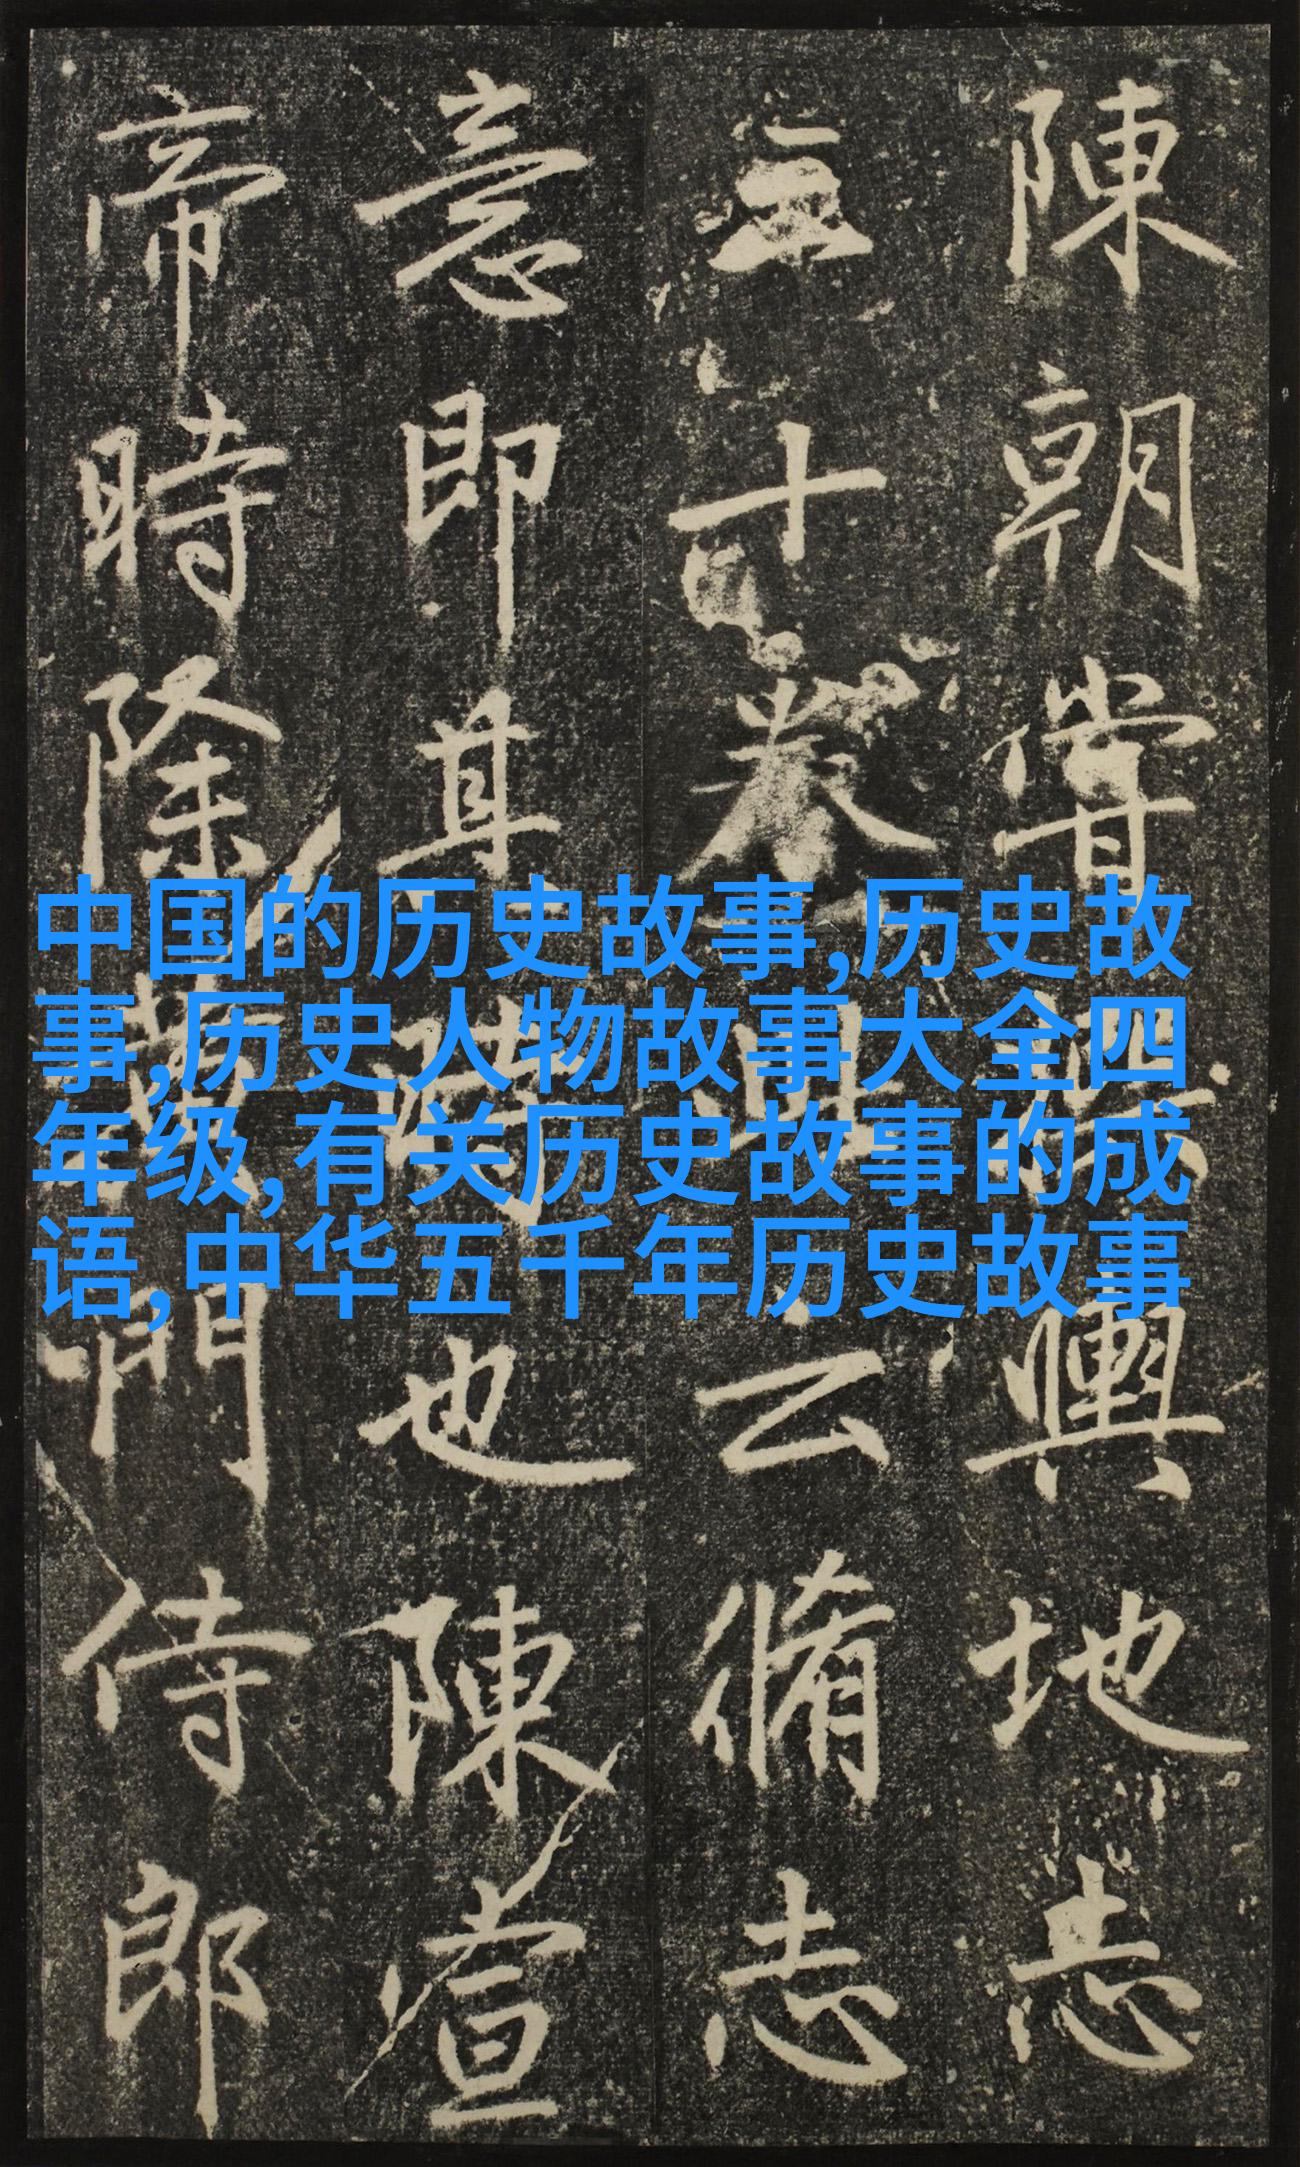 陳朝嘗輿地志
三十卷云脩志
意即其也陳宣
帝時除黃門侍郎
中国的历史故事,历史故
事,历史人物故事大全四
年级,有关历史故事的成
语,中华五千年历史故事